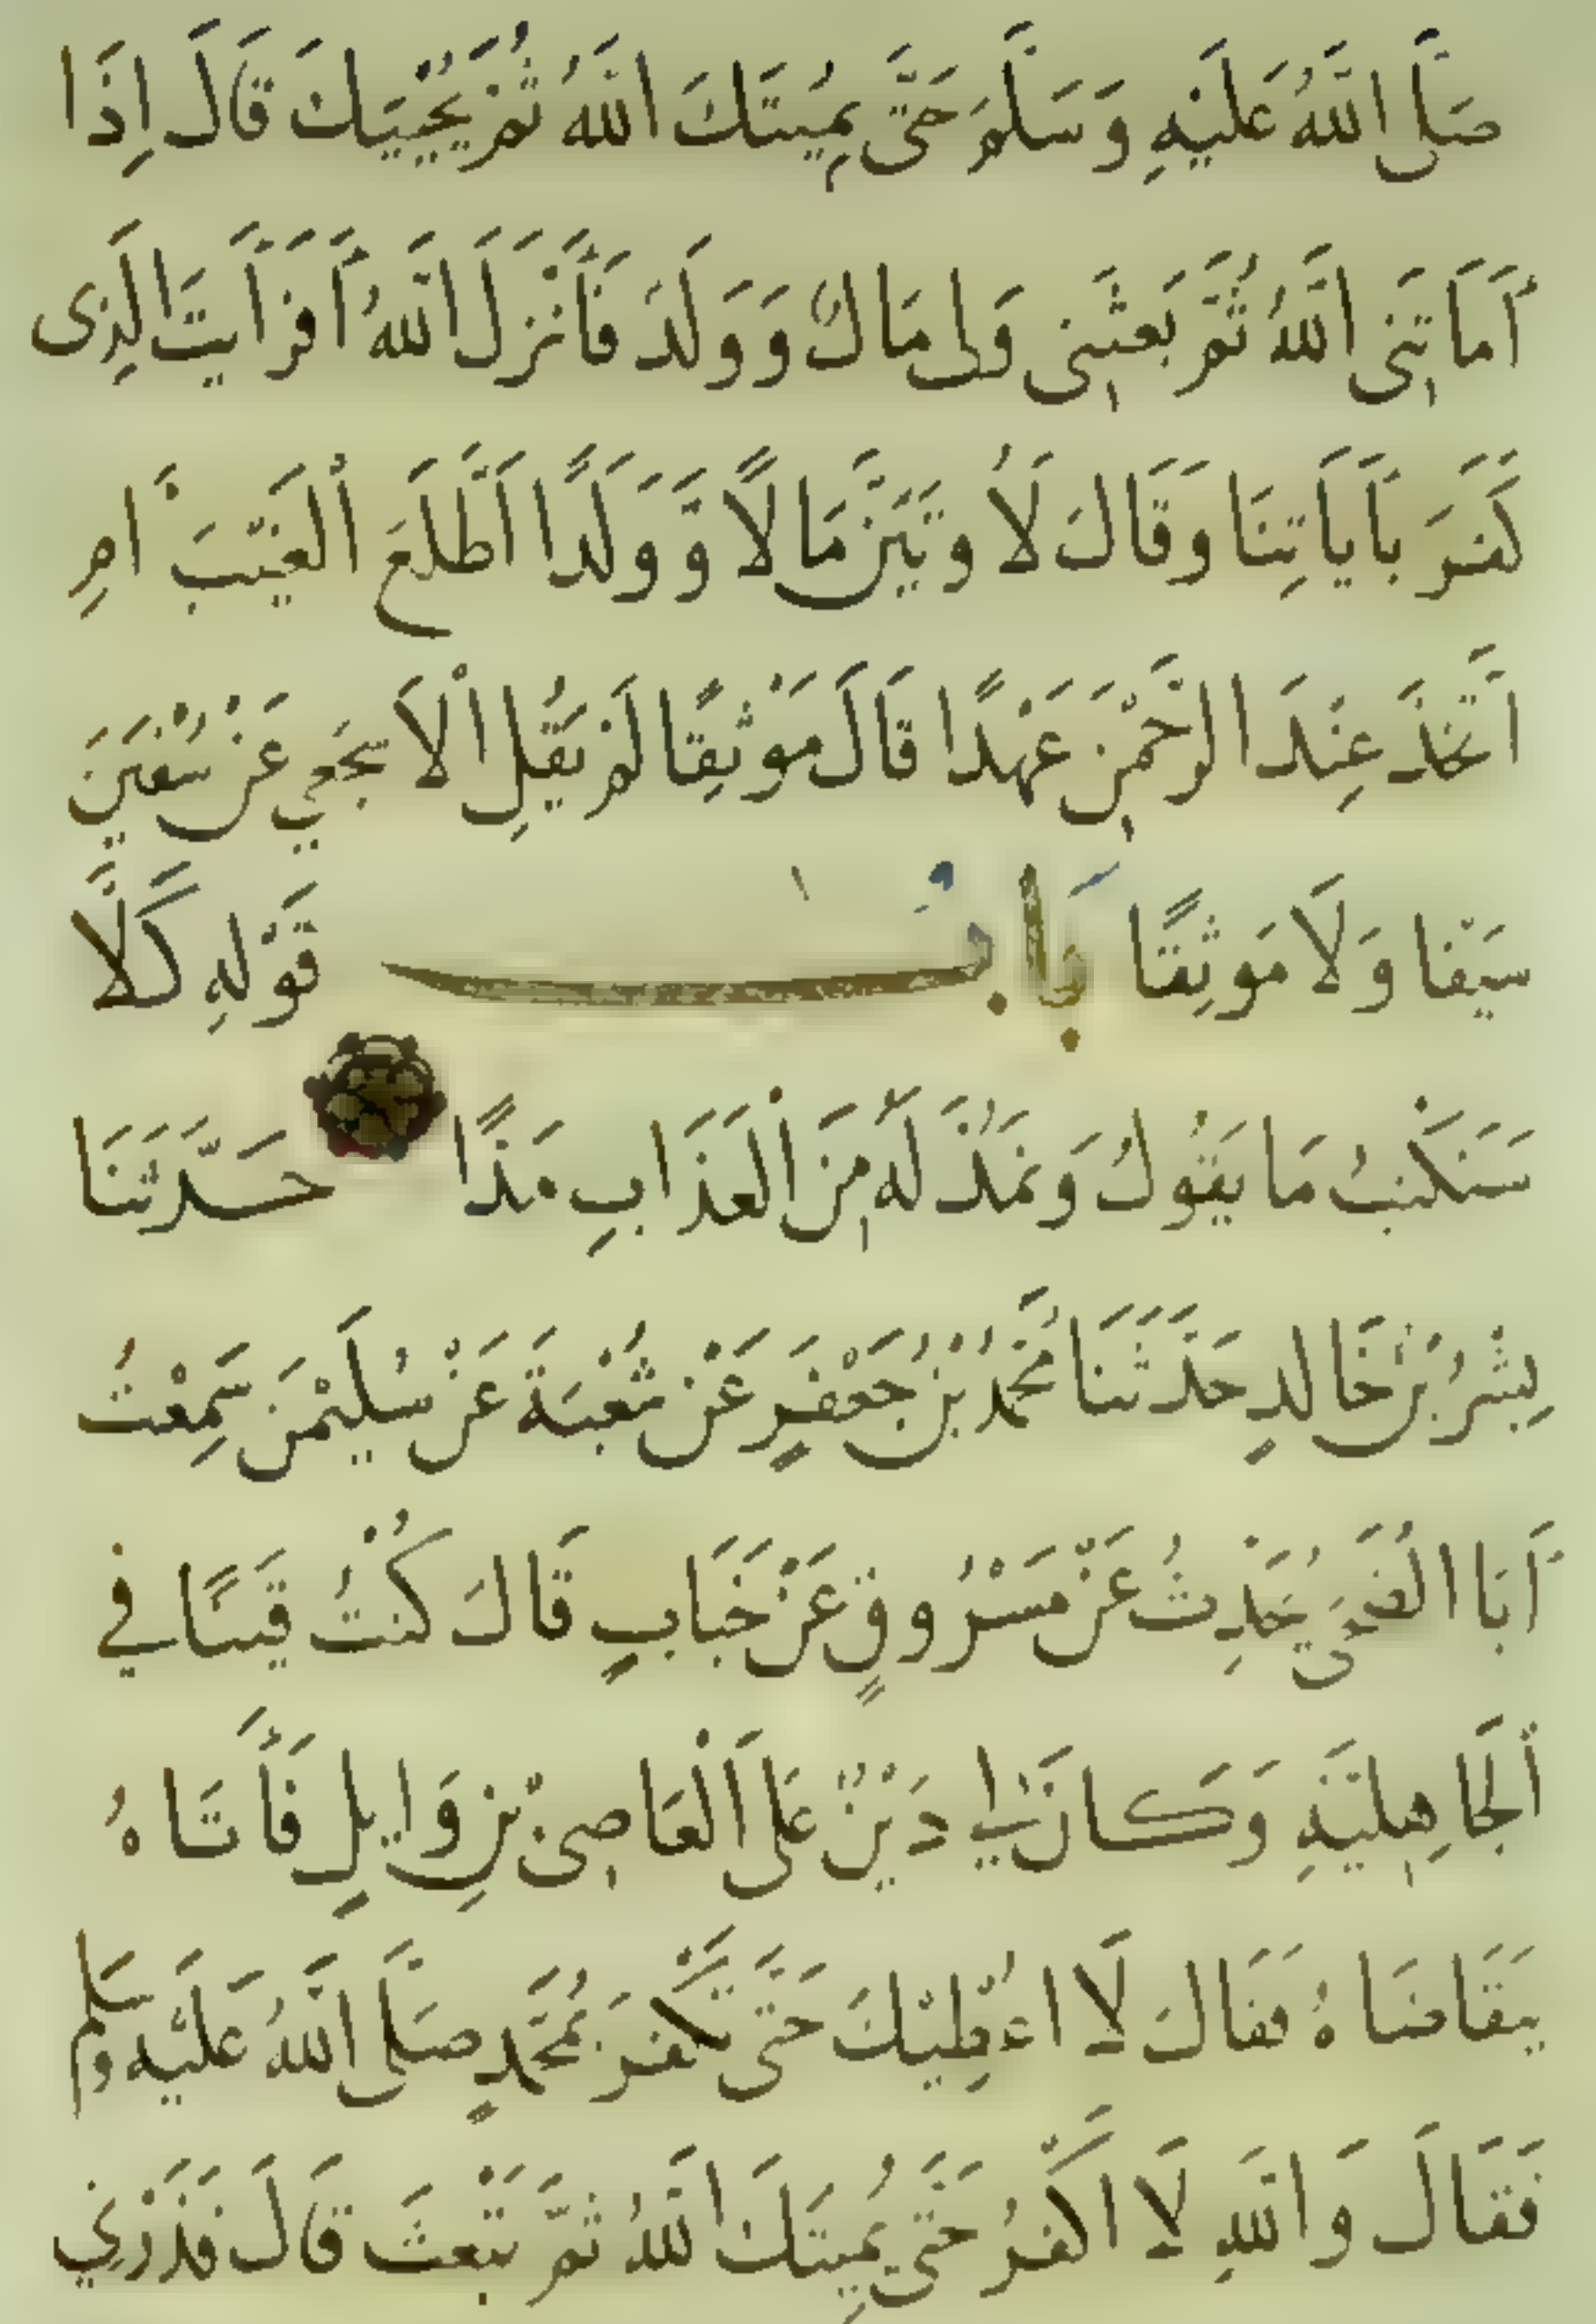 صَلَّى اللَّهُ عَلَيْهِ وَسَلَّمَ حَتَّى يُمِيتَكَ اللَّهُ ثُمَّ يُحْيِيَكَ قَالَ اِذَا
أَمَاتَنِى اللَّهُ ثُمَّ بَعَثَنِى وَلِى مَالٌ وَوَلَدٌ فَأَنْزَلَ اللَّهُ أَفَرَأَيْتَ الَّذِى
كَفَرَ بِاٰيَاتِنَا وَقَالَ لَاُوتَيَنَّ مَالًا وَّوَلَدًا اَطَّلَعَ الْغَيْبَ اَمِ
اتَّخَذَ عِنْدَ الرَّحْمٰنِ عَهْدًا قَالَ مَوْثِقًا لَمْ يَقُلِ الْاَشْجَعِي عَنْ سُفْيَنَ
سَيْفًا وَلَا مَوْثِقًا بَابٌ قَوْلِهِ كَلَّا
سَنَكْتُبُ مَا يَقُولُ وَنَمُدُّ لَهُ مِنَ الْعَذَابِ مَدًّا حَدَّثَنَا
بِشْرُ بْنُ خَالِدٍ حَدَّثَنَا مُحَمَّدُ بْنُ جَعْفَرٍ عَنْ شُعْبَةَ عَنْ سُلَيْمٰنَ سَمِعْتُ
أَبَا الضُّحَى يُحَدِّثُ عَنْ مَسْرُوقٍ عَنْ خَبَّابٍ قَالَ كُنْتُ قَيْنًا فِي
الْجَاهِلِيَّةِ وَكَانَ لِي دَيْنٌ عَلَى الْعَاصِى بْنِ وَايِلٍ فَأَتَاهُ
يَتَقَاضَاهُ فَقَالَ لَا اُعْطِيْكَ حَتَّى تَكْفُرَ بِمُحَمَّدٍ صَلَّى اللَّهُ عَلَيْهِ وَسَلَّم
فَقَالَ وَاللَّهِ لَا اَكْفُرُ حَتَّى يُمِيتَكَ اللَّهُ ثُمَّ تُبْعَثَ قَالَ فَذَرْنِي